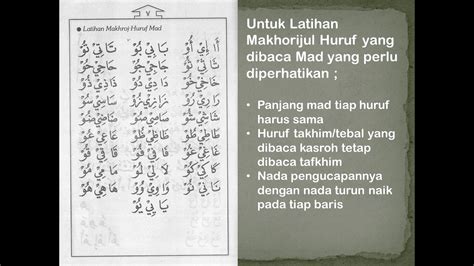 ٧
Latihan Makhroj Huruf Mad
أَا إِيْ أُوْ بَا بِيْ بُوْ تَا تِيْ تُوْ
ثَا ثِيْ ثُوْ جَا جِيْ جُوْ حَا حِيْ حُوْ
خَا خِيْ خُوْ دَا دِيْ دُوْ ذَا ذِيْ ذُوْ
رَا رِيْ رُوْ زَا زِيْ زُوْ سَا سِيْ سُوْ
شَا شِيْ شُوْ صَا صِيْ صُوْ ضَا ضِيْ ضُوْ
طَا طِيْ طُوْ ظَا ظِيْ ظُوْ عَا عِيْ عُوْ
غَا غِيْ غُوْ فَا فِيْ فُوْ قَا قِيْ قُوْ
كَا كِيْ كُوْ لَا لِيْ لُوْ مَا مِيْ مُوْ
نَا نِيْ نُوْ وَا وِيْ وُوْ هَا هِيْ هُوْ
يَا يِيْ يُوْ
Untuk Latihan
Makhorijul Huruf yang
dibaca Mad yang perlu
diperhatikan ;
• Panjang mad tiap huruf
harus sama
• Huruf takhim/tebal yang
dibaca kasroh tetap
dibaca tafkhim
• Nada pengucapannya
dengan nada turun naik
pada tiap baris